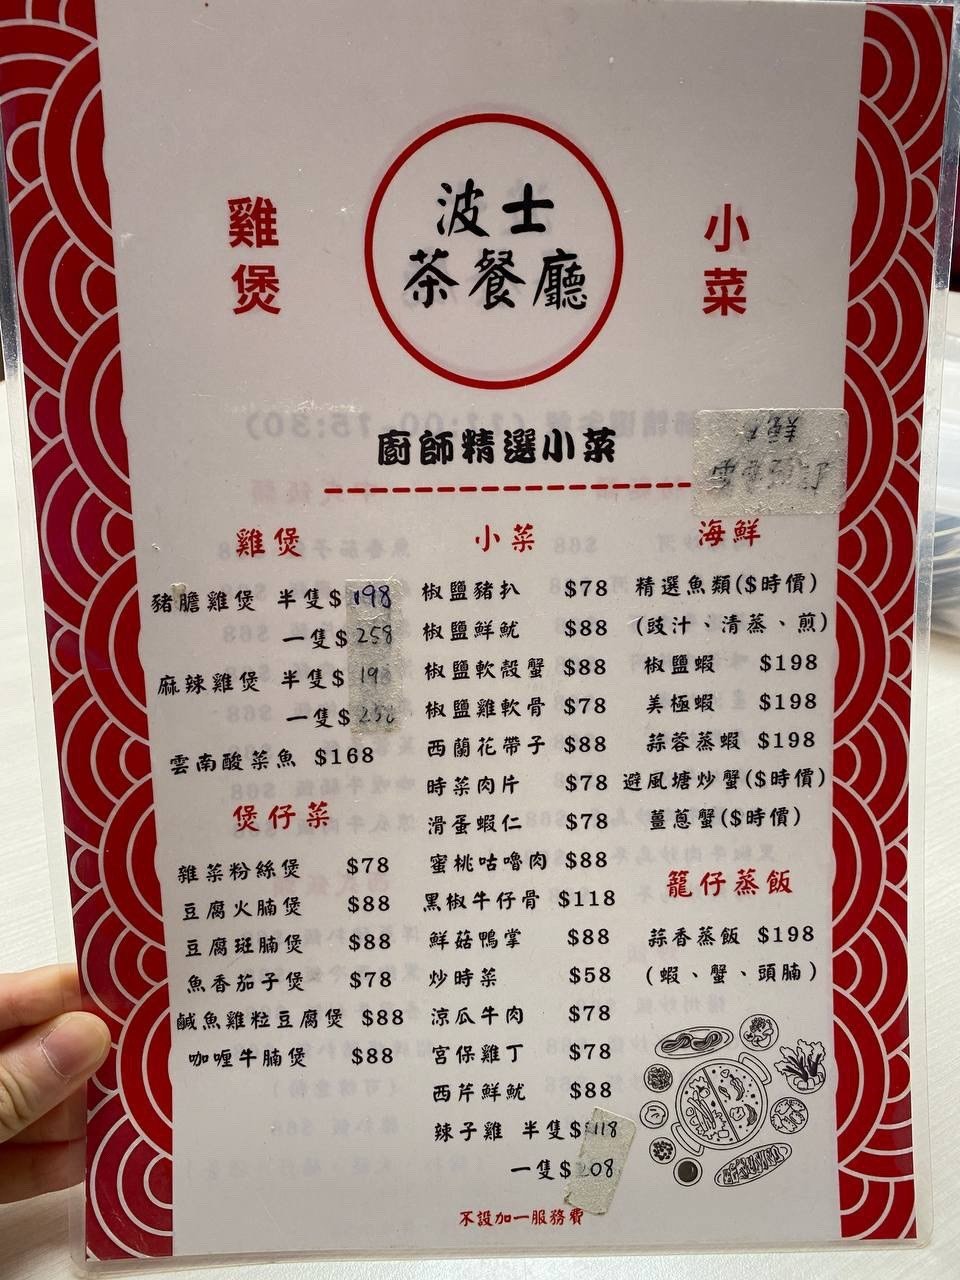 雞煲
波士
茶餐廳
小菜
廚師精選小菜
雞煲
豬膽雞煲 半隻$198
一隻$258
麻辣雞煲 半隻$198
一隻$258
雲南酸菜魚 $168
煲仔菜
雜菜粉絲煲 $78
豆腐火腩煲 $88
豆腐斑腩煲 $88
魚香茄子煲 $78
鹹魚雞粒豆腐煲 $88
咖喱牛腩煲 $88
小菜
椒鹽豬扒 $78
椒鹽鮮魷 $88
椒鹽軟殼蟹 $88
椒鹽雞軟骨 $78
西蘭花帶子 $88
時菜肉片 $78
滑蛋蝦仁 $78
蜜桃咕嚕肉 $88
黑椒牛仔骨 $118
鮮菇鴨掌 $88
炒時菜 $58
涼瓜牛肉 $78
宮保雞丁 $78
西芹鮮魷 $88
辣子雞 半隻$118
一隻$208
海鮮
精選魚類($時價)
(豉汁、清蒸、煎)
椒鹽蝦 $198
美極蝦 $198
蒜蓉蒸蝦 $198
避風塘炒蟹($時價)
薑蔥蟹($時價)
籠仔蒸飯
蒜香蒸飯 $198
(蝦、蟹、頭腩)
不設加一服務費